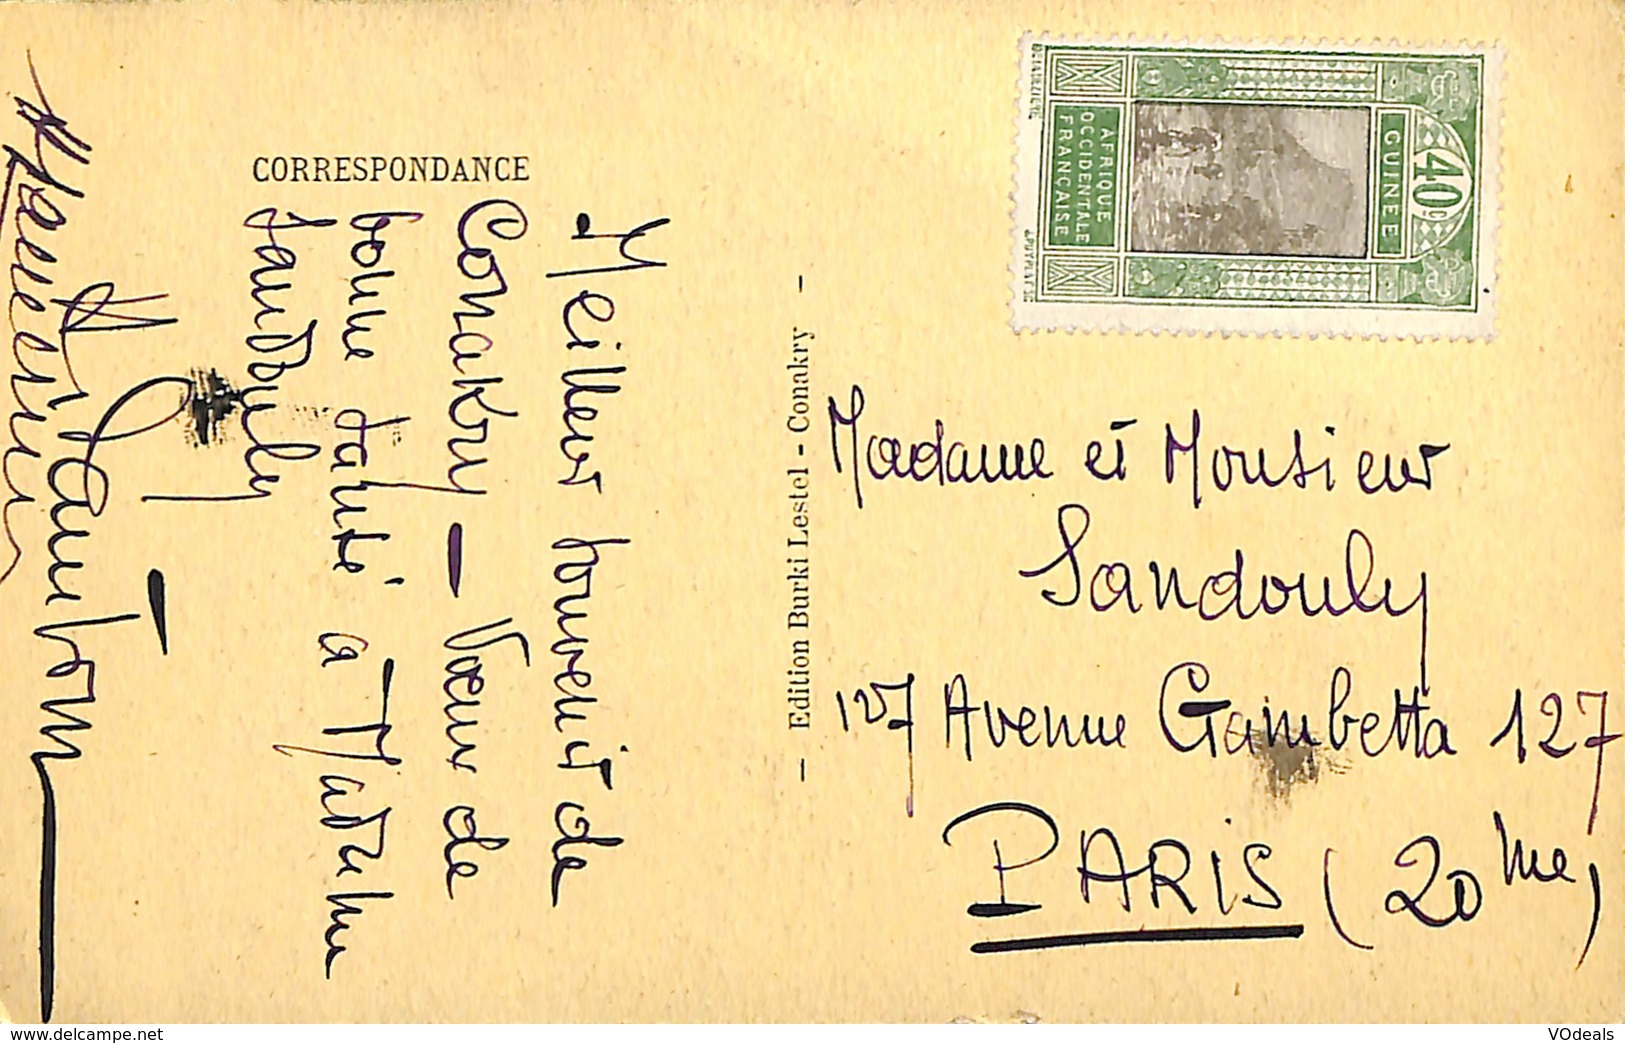 CORRESPONDANCE
Meilleur souvenir de
Conakry — Vœux de
bonne santé à Madame
Sandouly
— Edition Burki Lestel - Conakry —
40c
GUINÉE
AFRIQUE
OCCIDENTALE
FRANÇAISE
Madame et Monsieur
Sandouly
127 Avenue Gambetta 127
PARIS (20 me)
www.delcampe.net
VOdeals